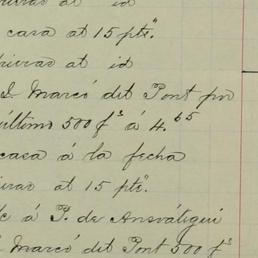 at id
casa at 15 pts.
at id
Marcó del Pont por
último 500 f.s á 4.65
casa á la fecha
at 15 pts.
á P. de Ansoátegui
Marcó del Pont 500 f.s